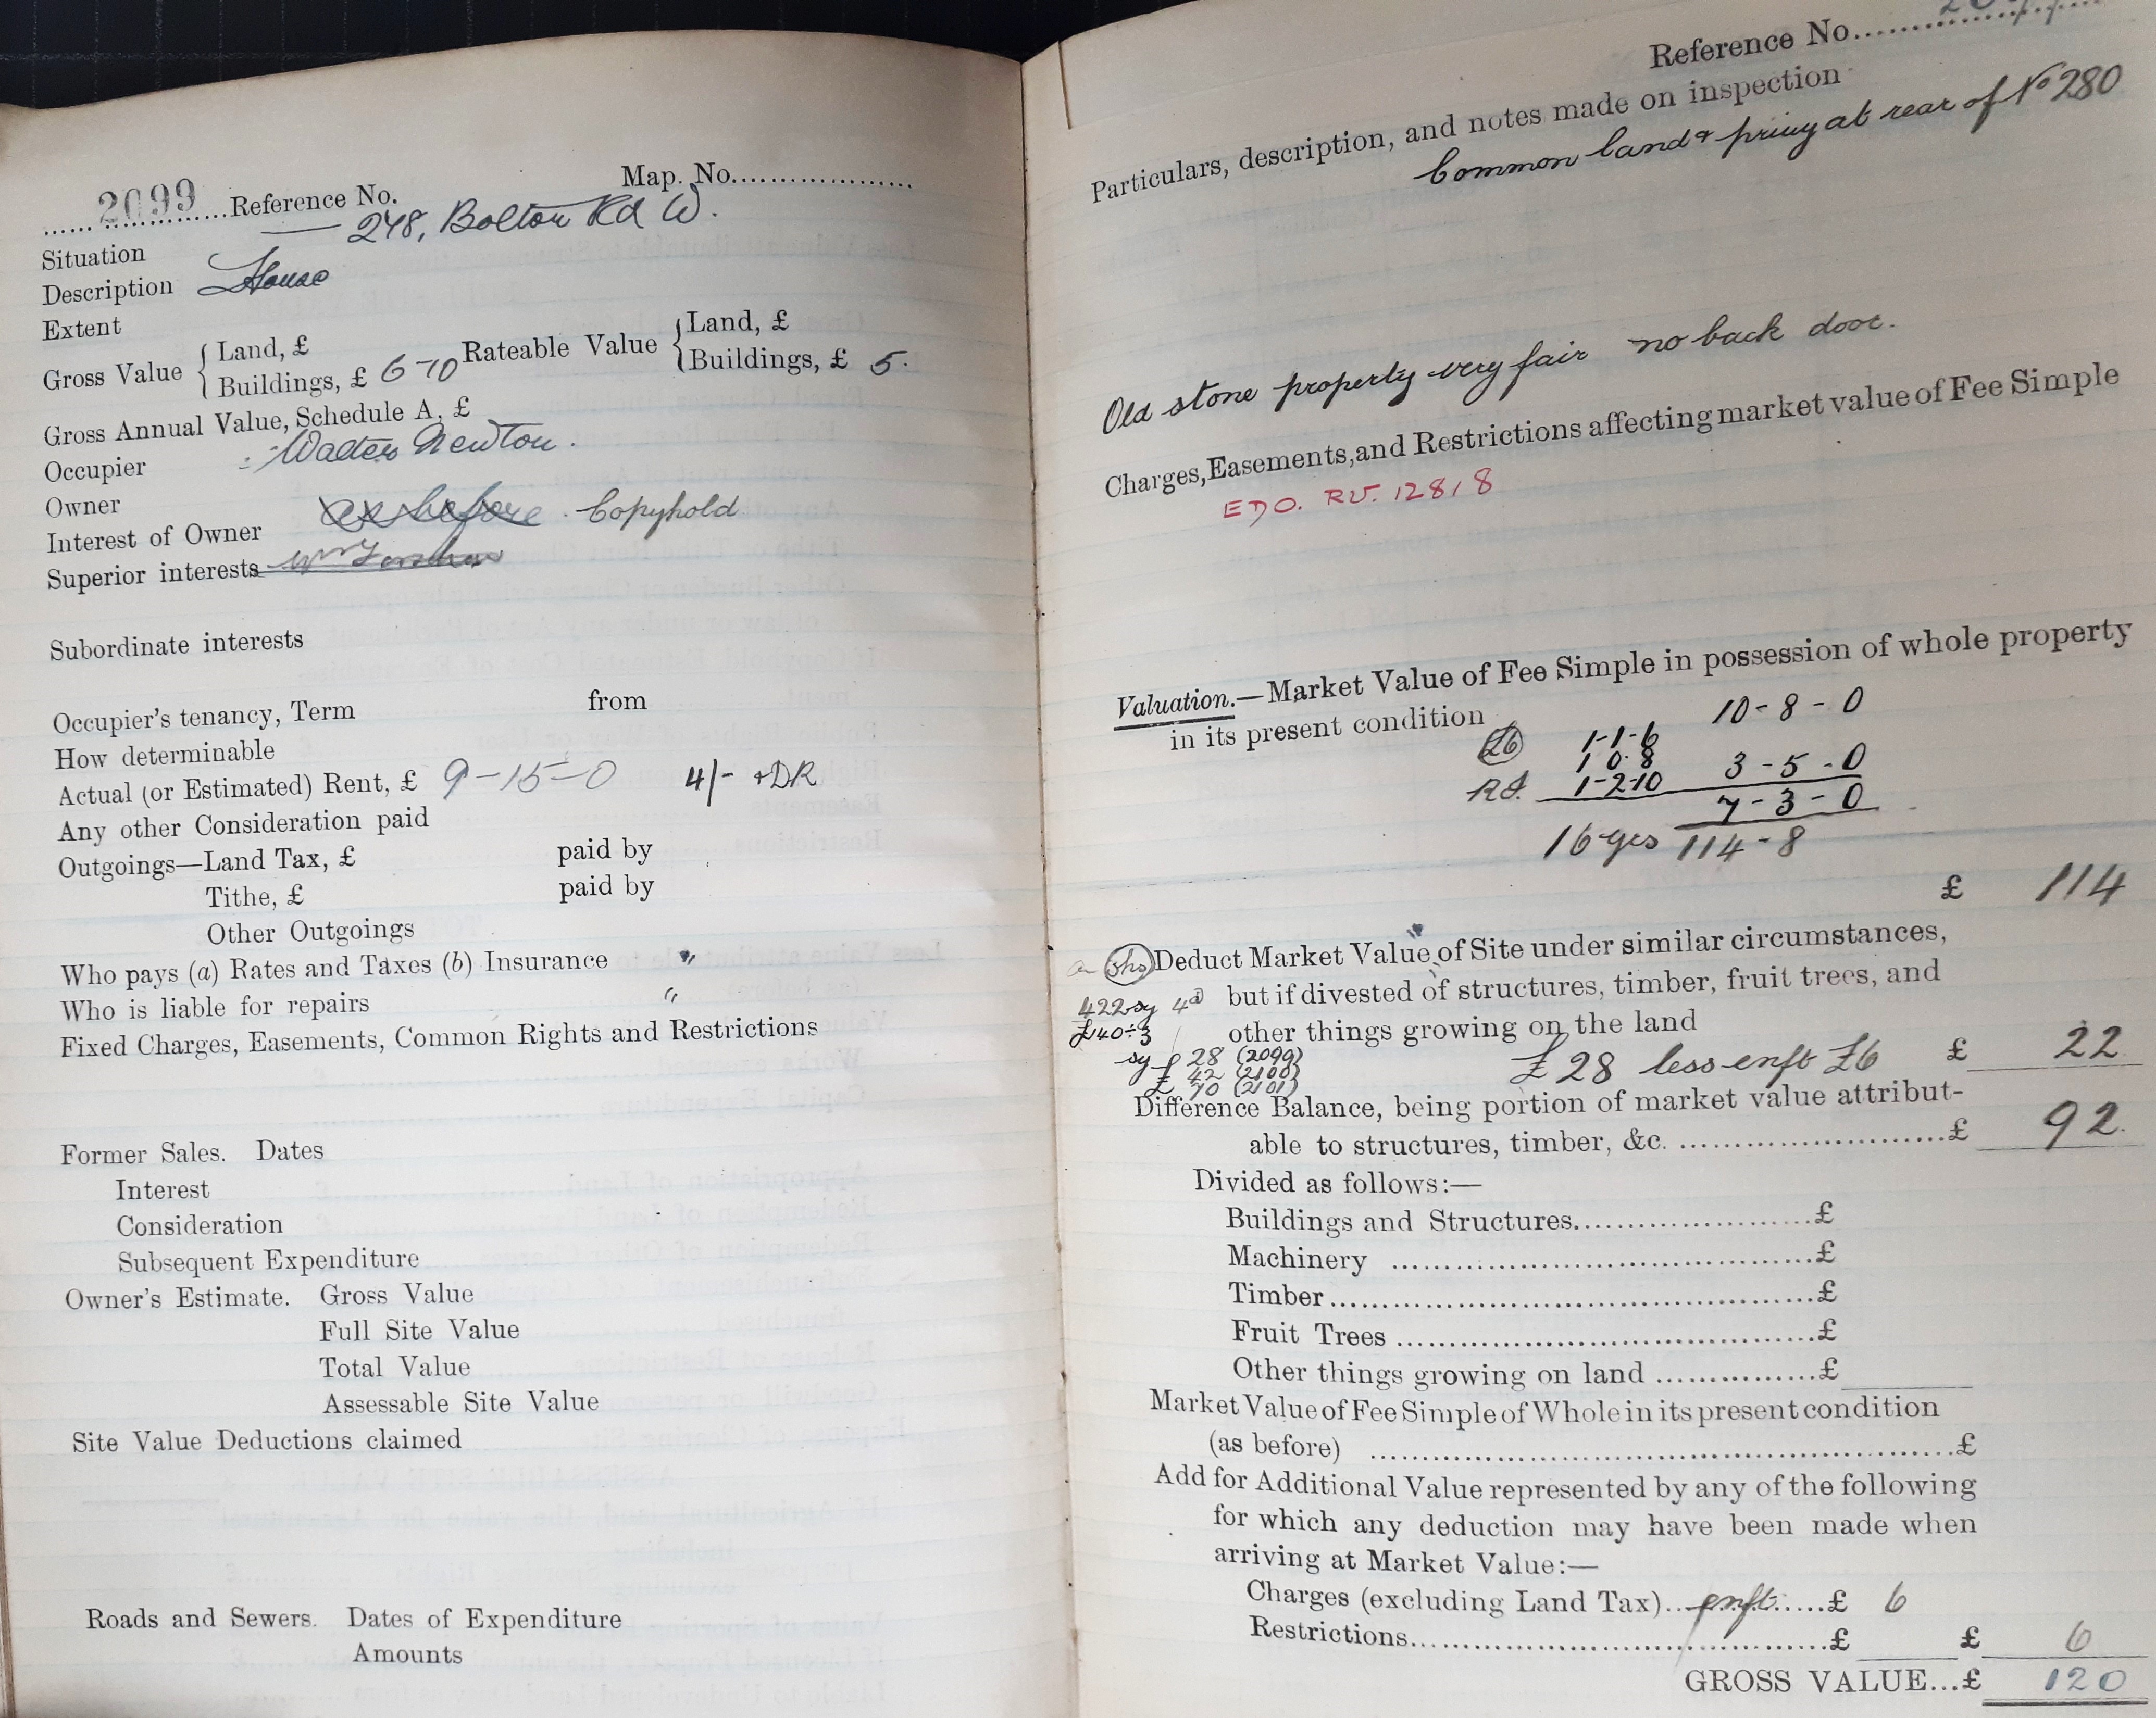 2099 Reference No.
Map. No.
Situation 248, Bolton Rd W.
Description House
Extent
Gross Value { Land, £
Buildings, £ 6-10
Rateable Value { Land, £
Buildings, £ 5.
Gross Annual Value, Schedule A, £
Occupier Walter Newton.
Owner
Interest of Owner as before Copyhold
Superior interests
Subordinate interests
Occupier's tenancy, Term from
How determinable
Actual (or Estimated) Rent, £ 9-15-0 4/- + DR
Any other Consideration paid
Outgoings—Land Tax, £ paid by
Tithe, £ paid by
Other Outgoings
Who pays (a) Rates and Taxes (b) Insurance "
Who is liable for repairs "
Fixed Charges, Easements, Common Rights and Restrictions
Former Sales. Dates
Interest
Consideration
Subsequent Expenditure
Owner's Estimate. Gross Value
Full Site Value
Total Value
Assessable Site Value
Site Value Deductions claimed
Roads and Sewers. Dates of Expenditure
Amounts
Reference No.
Particulars, description, and notes made on inspection
Common land & privy at rear of No 280
Old stone property very fair no back door.
Charges, Easements, and Restrictions affecting market value of Fee Simple
EDO. RV. 12818
Valuation.—Market Value of Fee Simple in possession of whole property
in its present condition
10-8-0
£6 1-1-6
1 0.8
R.I. 1-2-10 3-5-0
7-3-0
16 yrs 114-8
£ 114
Deduct Market Value of Site under similar circumstances,
422 sy 4d but if divested of structures, timber, fruit trees, and
£140÷3 other things growing on the land
sy £ 28 (2099) £28 less enft £6 £ 22
£ 42 (2100)
£ 70 (2101)
Difference Balance, being portion of market value attribut-
able to structures, timber, &c. £ 92.
Divided as follows:—
Buildings and Structures £
Machinery £
Timber £
Fruit Trees £
Other things growing on land £
Market Value of Fee Simple of Whole in its present condition
(as before) £
Add for Additional Value represented by any of the following
for which any deduction may have been made when
arriving at Market Value:—
Charges (excluding Land Tax) enft. £ 6
Restrictions £ £ 6
GROSS VALUE...£ 120